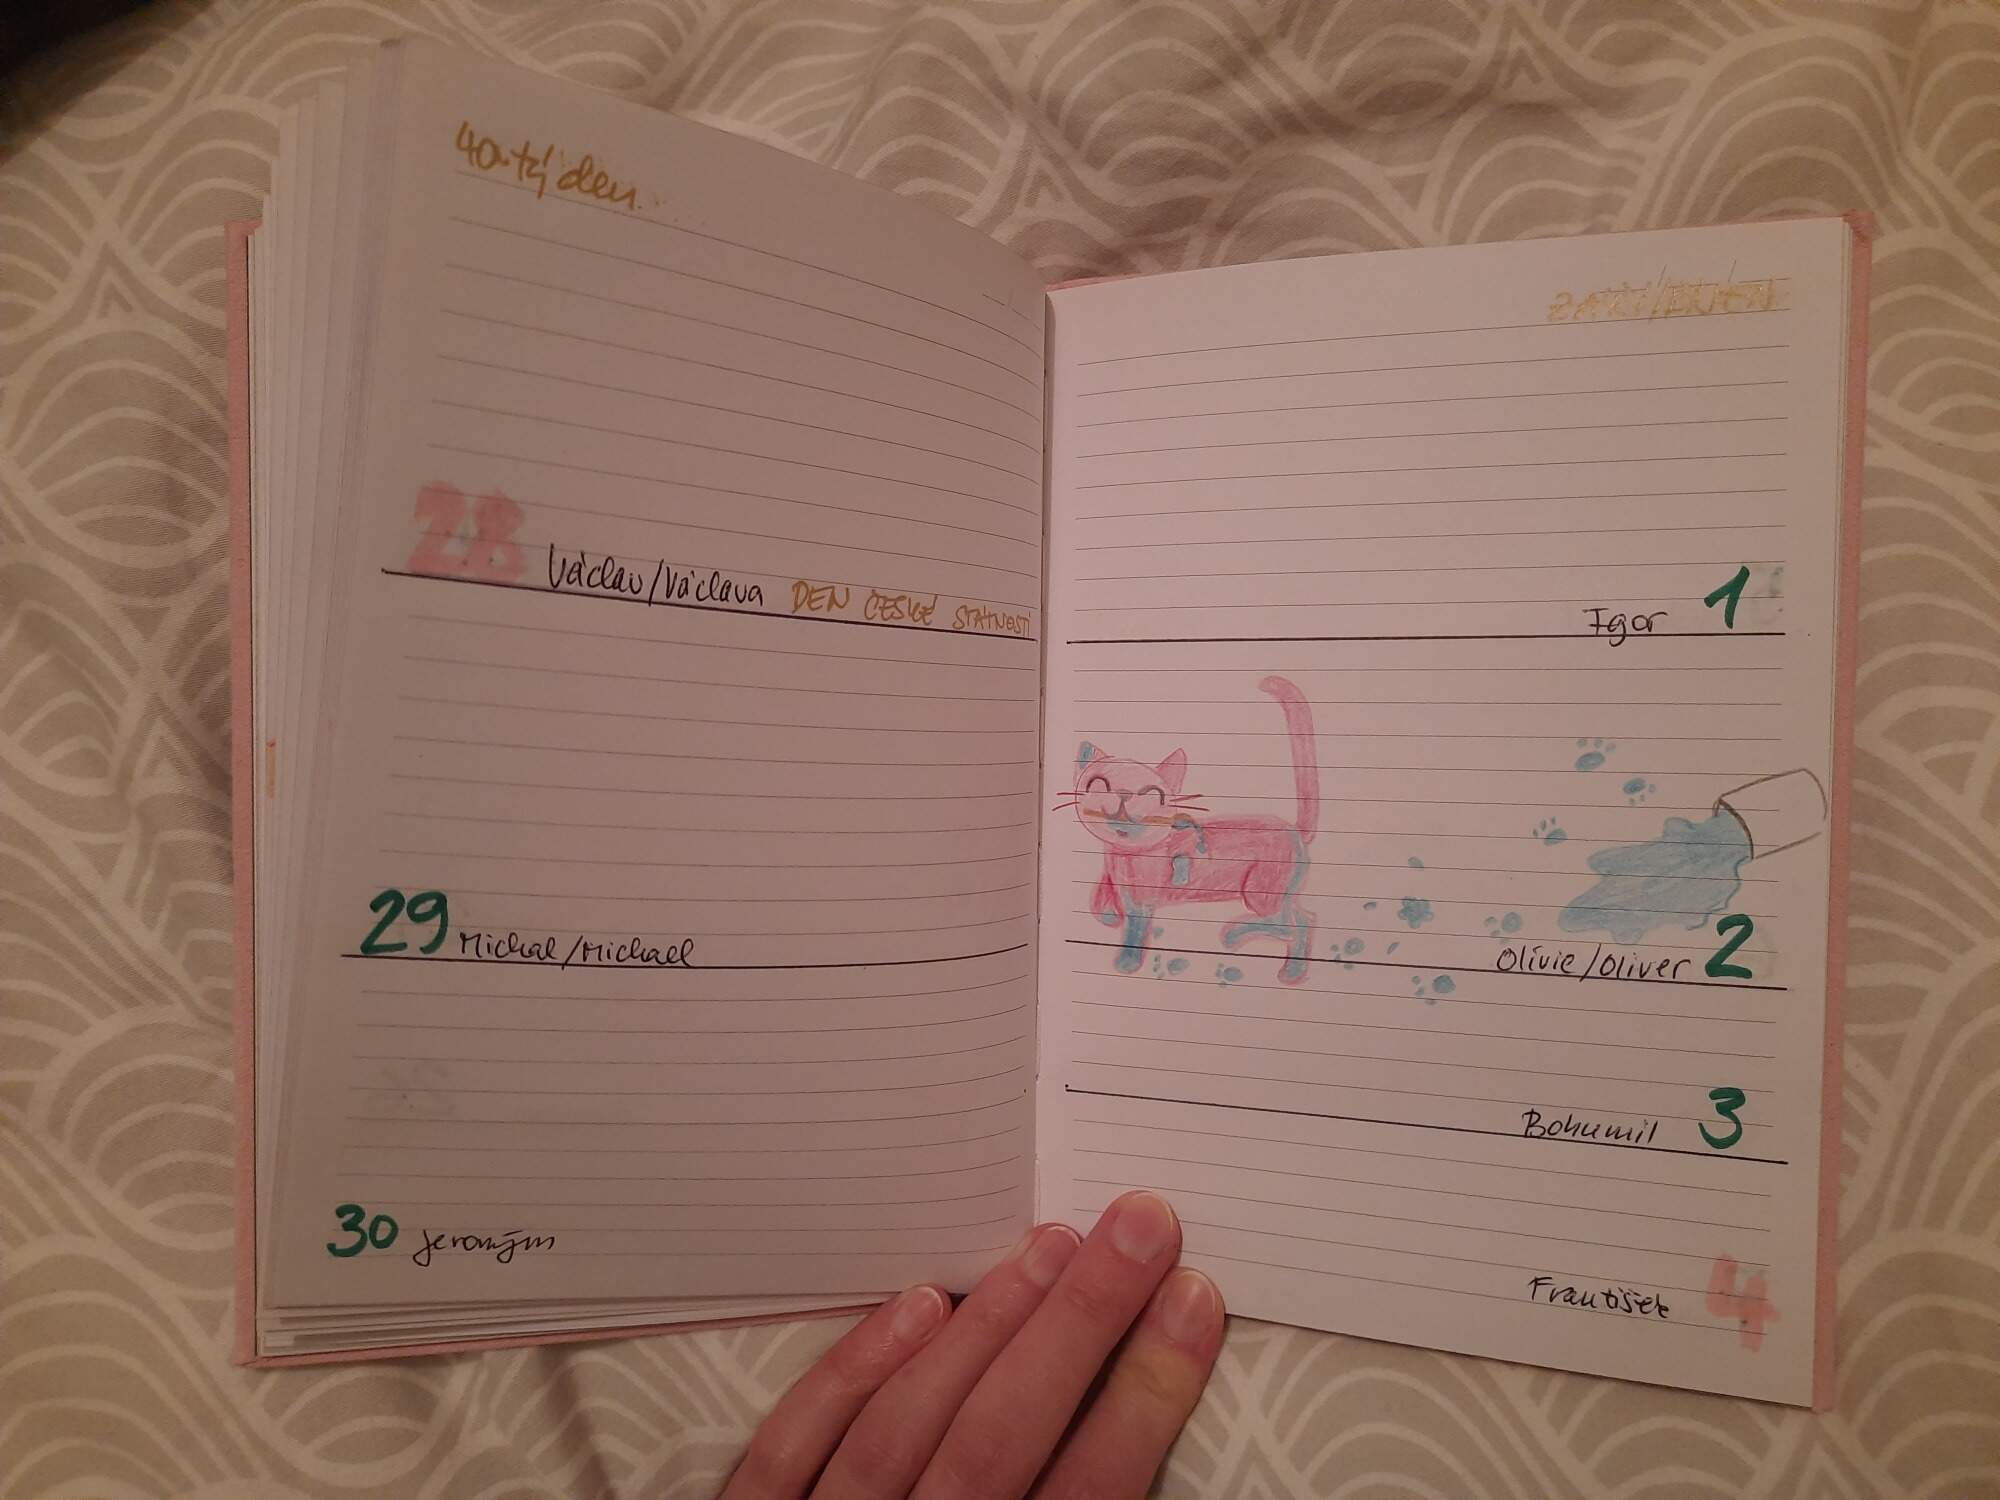 40. týden
28 Václav/Václava DEN ČESKÉ STÁTNOSTI
29 Michal/Michael
30 Jeroným
ZÁŘÍ/ŘÍJEN
Igor 1
Olívie/Oliver 2
Bohumil 3
František 4